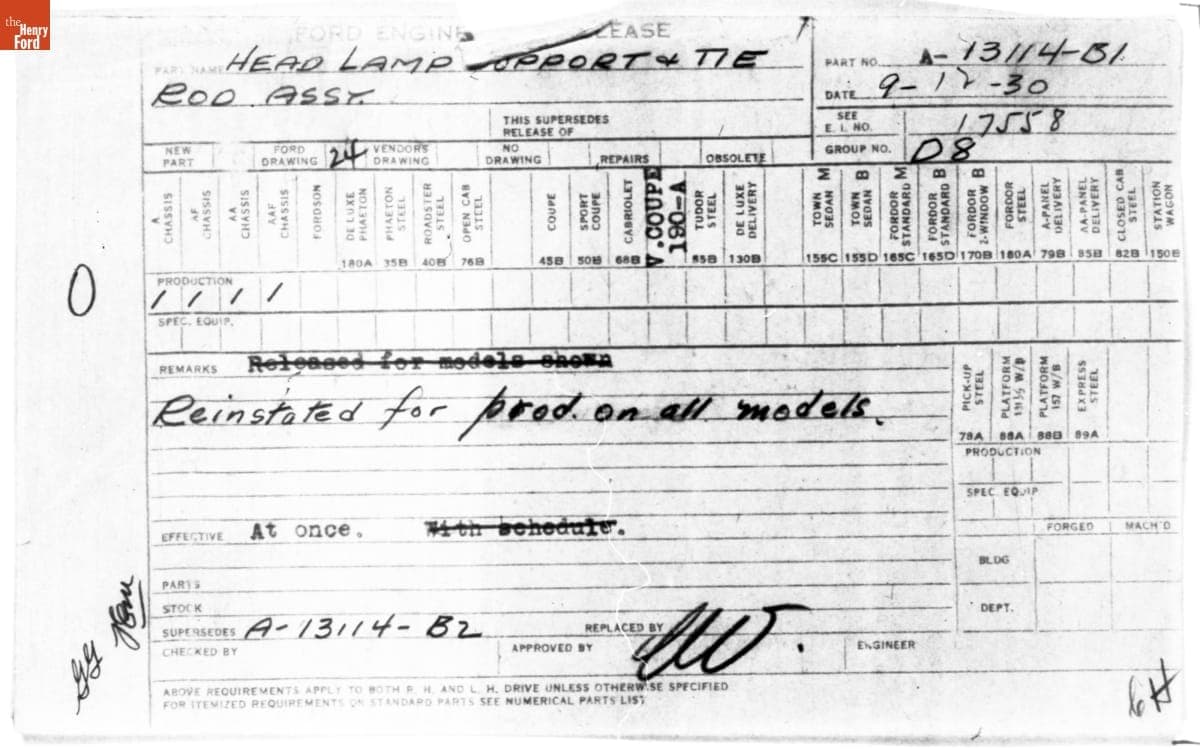 the
Henry
Ford
FORD ENGINE
LEASE
PART NAME HEAD LAMP SUPPORT & TIE
ROD ASSY.
PART NO. A-13114-B1
DATE 9-12-30
THIS SUPERSEDES
RELEASE OF
SEE
E. I. NO. 17558
GROUP NO. D8
NEW
PART
FORD
DRAWING
24
VENDORS
DRAWING
NO
DRAWING
REPAIRS
OBSOLETE
A
CHASSIS
AF
CHASSIS
AA
CHASSIS
AAF
CHASSIS
FORDSON
DE LUXE
PHAETON
180A
PHAETON
STEEL
35B
ROADSTER
STEEL
40B
OPEN CAB
STEEL
76B
COUPE
45B
SPORT
COUPE
50B
CABRIOLET
68B
V.COUPE
190-A
TUDOR
STEEL
55B
DE LUXE
DELIVERY
130B
TOWN
SEDAN M
155C
TOWN
SEDAN B
155D
FORDOR
STANDARD M
165C
FORDOR
STANDARD B
165D
FORDOR
2-WINDOW B
170B
FORDOR
STEEL
180A
A-PANEL
DELIVERY
79B
AA-PANEL
DELIVERY
85B
CLOSED CAB
STEEL
82B
STATION
WAGON
150B
O
PRODUCTION
1 1 1 1
SPEC. EQUIP.
REMARKS Released for models shown
Reinstated for prod. on all models.
PICK-UP
STEEL
78A
PLATFORM
131½ W/B
88A
PLATFORM
157 W/B
88B
EXPRESS
STEEL
89A
PRODUCTION
SPEC EQUIP
FORGED
MACH'D
EFFECTIVE At once. With schedule.
BLDG
DEPT.
PARTS
STOCK
SUPERSEDES A-13114-B2
REPLACED BY
CHECKED BY
APPROVED BY
ENGINEER
ABOVE REQUIREMENTS APPLY TO BOTH R. H. AND L. H. DRIVE UNLESS OTHERWISE SPECIFIED
FOR ITEMIZED REQUIREMENTS ON STANDARD PARTS SEE NUMERICAL PARTS LIST.